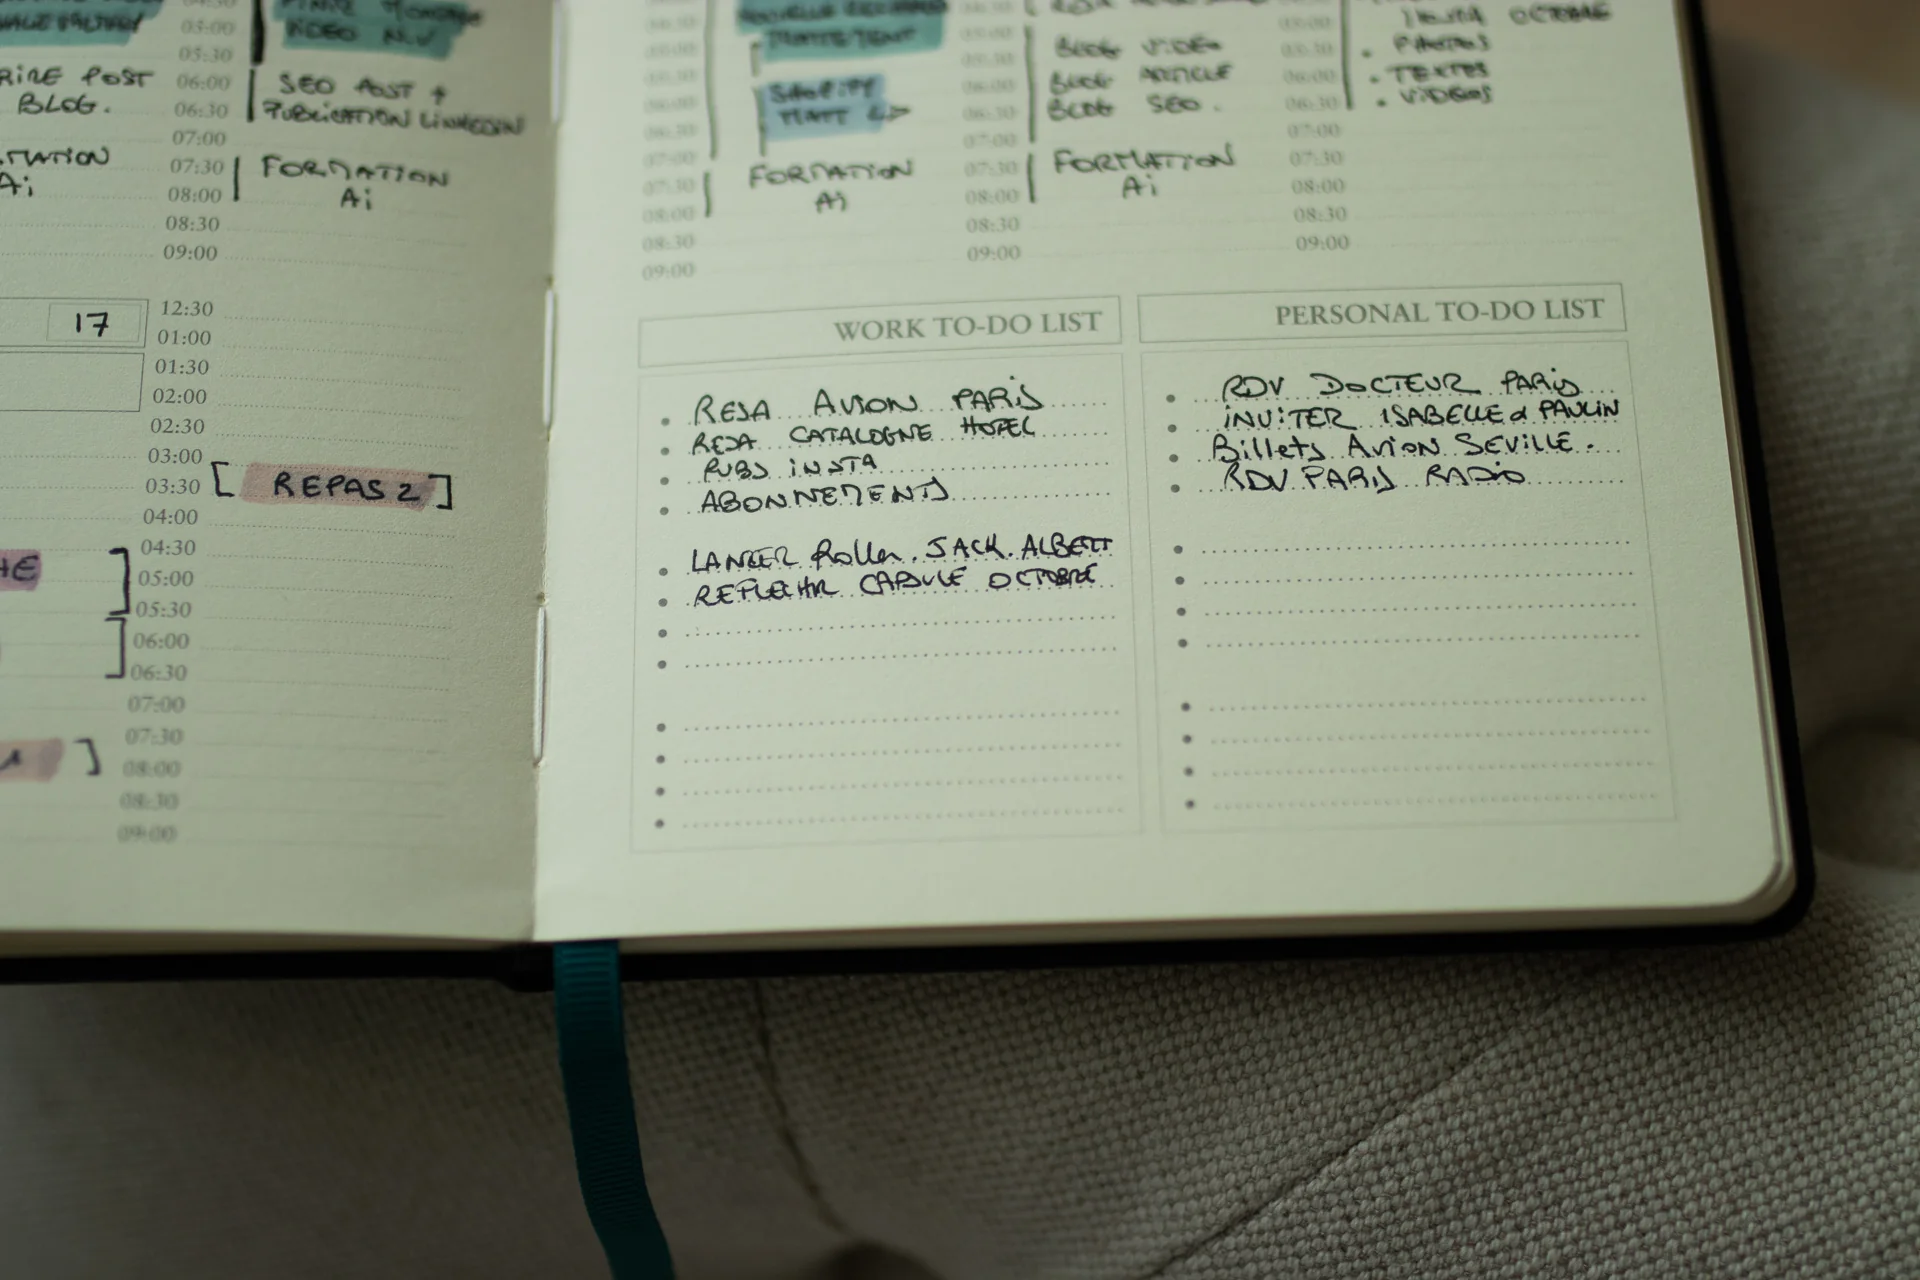 05:00
05:30
06:00
06:30
07:00
07:30
08:00
08:30
09:00
VIDEO N.V
POST
BLOG.
SEO POST +
PUBLICATION LINKEDIN
FORMATION
Ai
Ai
17
12:30
01:00
01:30
02:00
02:30
03:00
03:30
04:00
04:30
05:00
05:30
06:00
06:30
07:00
07:30
08:00
08:30
09:00
[ REPAS 2 ]
06:30
07:00
07:30
08:00
08:30
09:00
SHOPIFY
FORMATION
Ai
06:00
06:30
07:00
07:30
08:00
08:30
09:00
BLOG VIDEO
BLOG ARTICLE
BLOG SEO.
FORMATION
Ai
05:30
06:00
06:30
07:00
07:30
08:00
08:30
09:00
OCTOBRE
. PHOTOS
. TEXTES
. VIDEOS
WORK TO-DO LIST
• RESA AVION PARIS
• RESA CATALOGNE HOTEL
• PUBS INSTA
• ABONNEMENTS
• LANCER Roller. JACK. ALBERT
• REFLECHIR CAPSULE OCTOBRE
PERSONAL TO-DO LIST
• RDV DOCTEUR PARIS
• INVITER ISABELLE & PAULIN
• Billets Avion SEVILLE.
• RDV PARIS RADIO